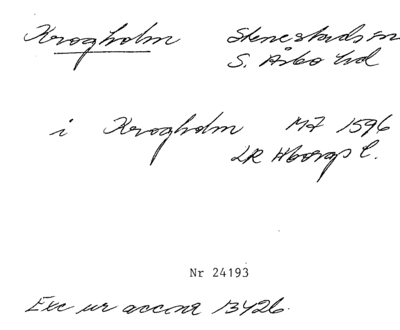 Krogholm Stenestads sn
S. Åsbo hd
i Krogholm M7 1596
LR Hborgs l.
Nr 24193
Exc ur accnr 13426.